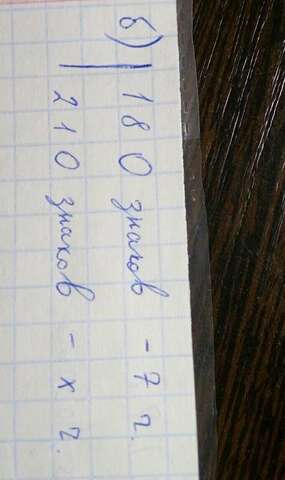 б) 180 знаков - 7 ч.
210 знаков - х ч.